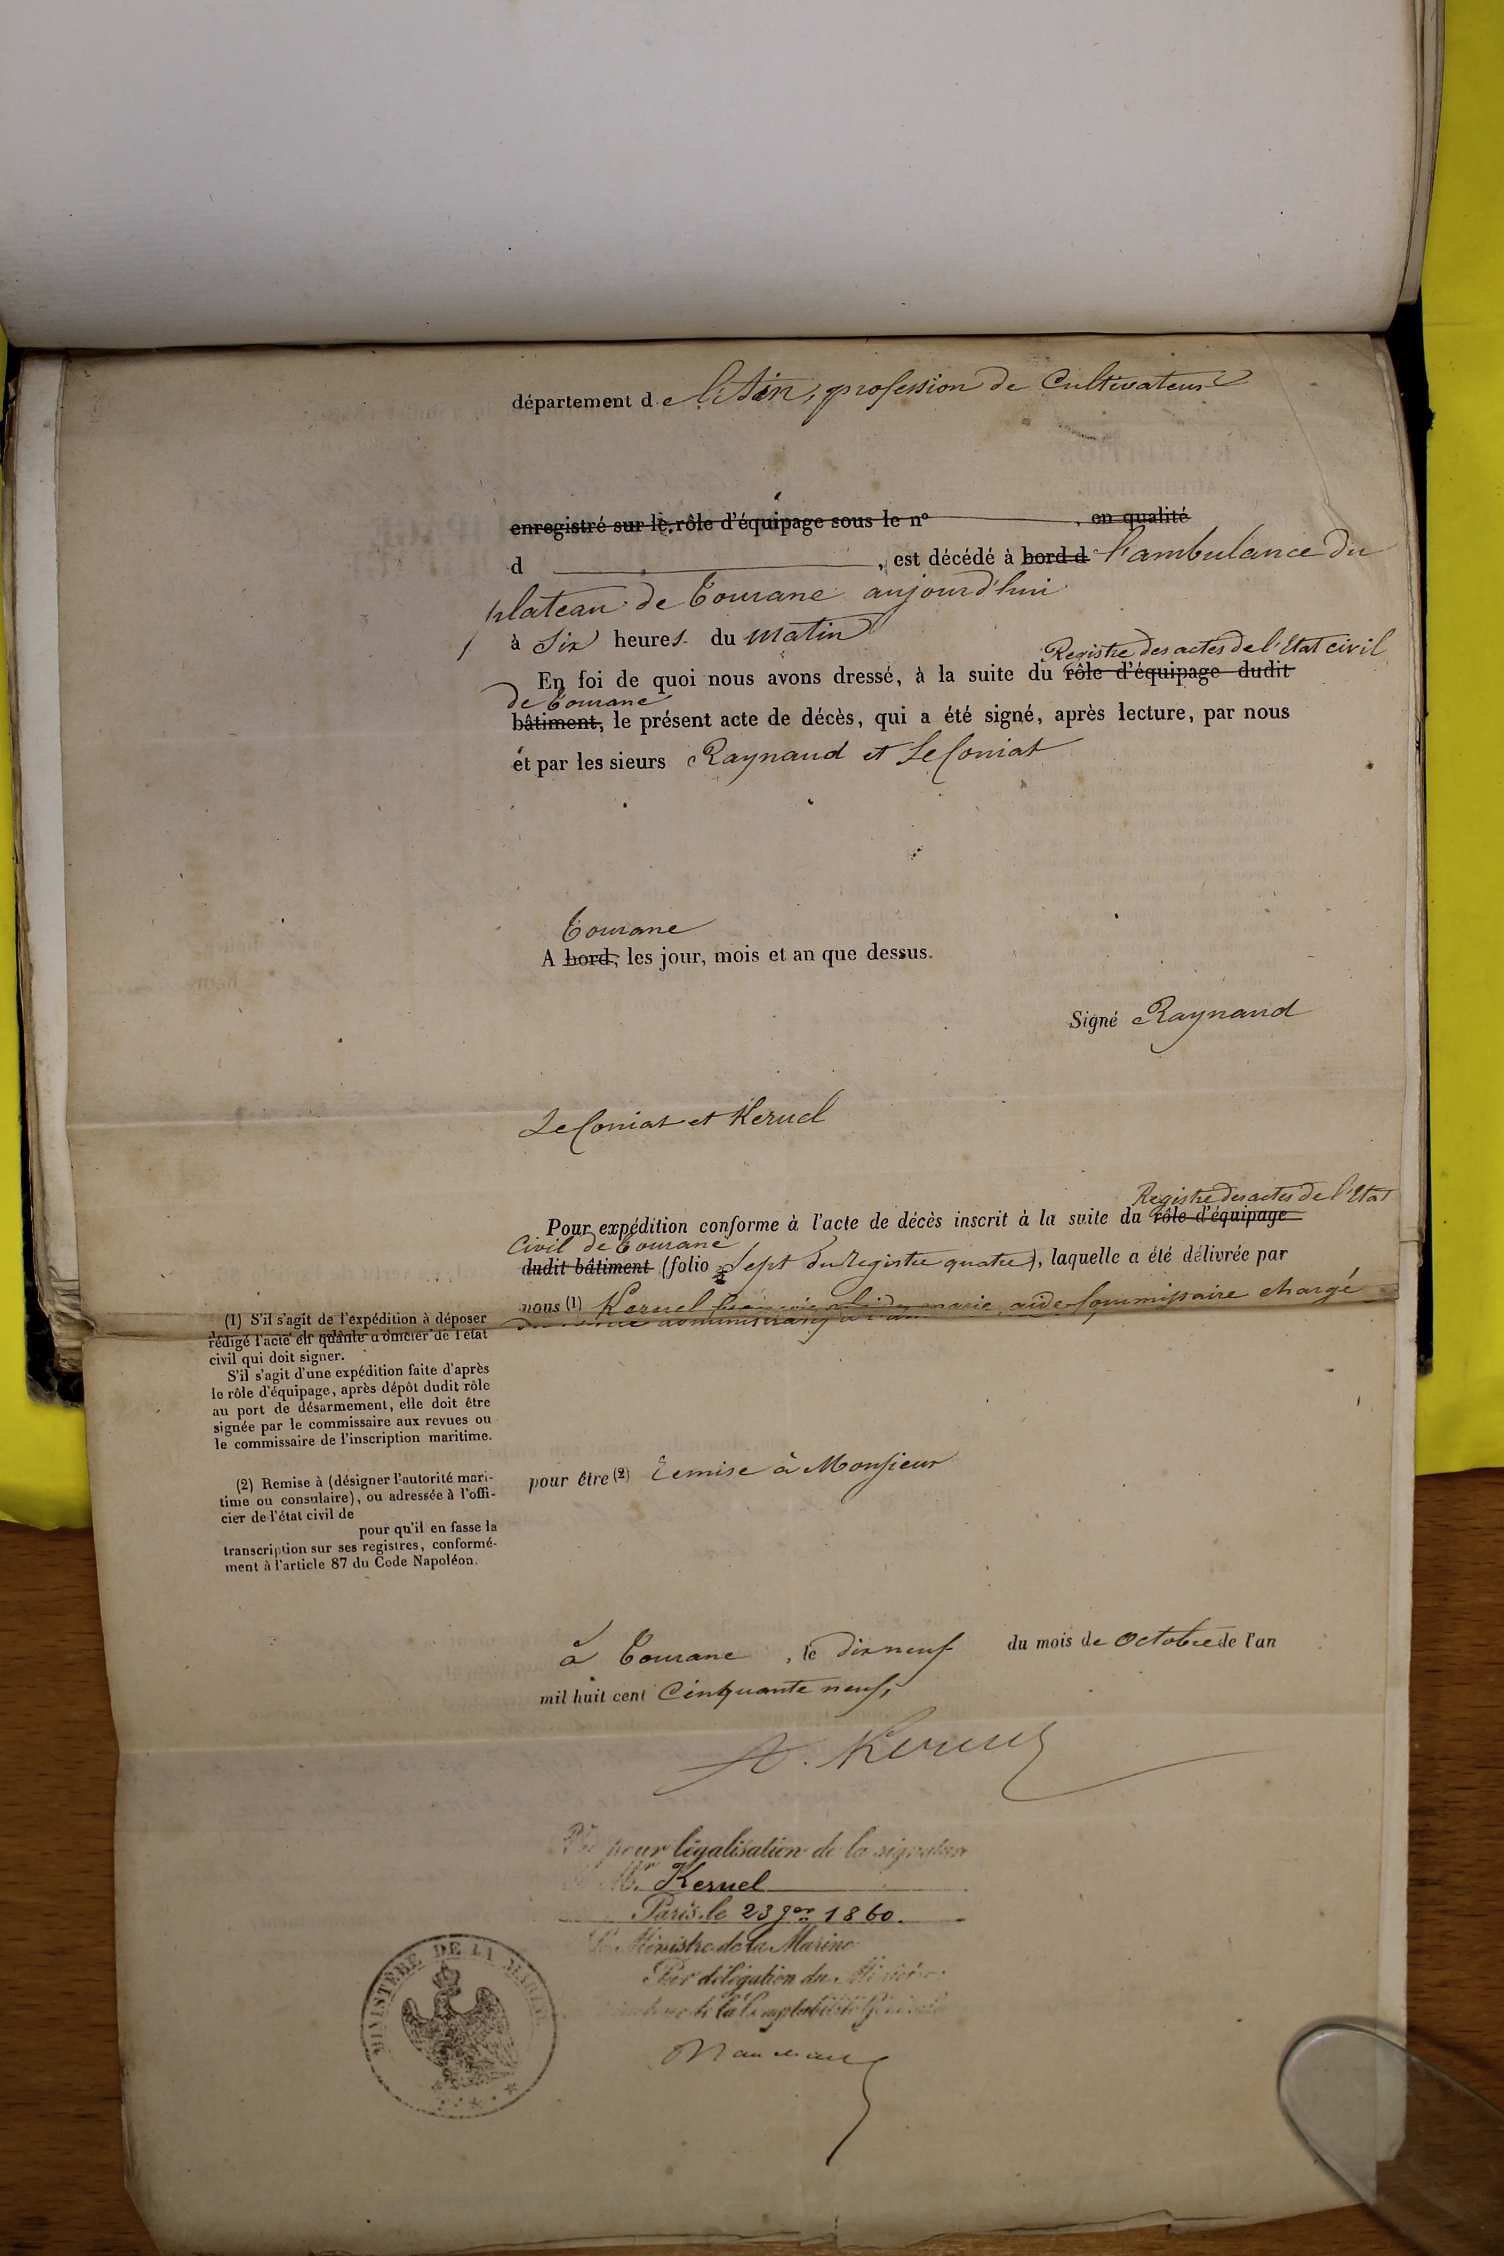 département de l'Ain, profession de Cultivateur
enregistré sur le rôle d'équipage sous le n° , en qualité
d , est décédé à bord d l'ambulance du
plateau de Tourane aujourd'hui
à Six heures du matin
Registre des actes de l'Etat civil
En foi de quoi nous avons dressé, à la suite du rôle d'équipage dudit
de Tourane
bâtiment, le présent acte de décès, qui a été signé, après lecture, par nous
et par les sieurs Raynaud et Le Coniat
Tourane
A bord, les jour, mois et an que dessus.
Signé Raynaud
Le Coniat et Keruel
Registre des actes de l'Etat
Pour expédition conforme à l'acte de décès inscrit à la suite du rôle d'équipage
Civil de Tourane
dudit bâtiment (folio Sept du Registre quatre), laquelle a été délivrée par
nous (1) Keruel marie aide-Commissaire chargé
pour être (2) Remise à Monsieur
(1) S'il s'agit de l'expédition à déposer
rédigé l'acte en qualité d'officier de l'état
civil qui doit signer.
S'il s'agit d'une expédition faite d'après
le rôle d'équipage, après dépôt dudit rôle
au port de désarmement, elle doit être
signée par le commissaire aux revues ou
le commissaire de l'inscription maritime.
(2) Remise à (désigner l'autorité mari-
time ou consulaire), ou adressée à l'offi-
cier de l'état civil de
pour qu'il en fasse la
transcription sur ses registres, conformé-
ment à l'article 87 du Code Napoléon.
à Tourane , le dix neuf du mois de Octobre de l'an
mil huit cent Cinquante neuf,
Keruel
Vu pour légalisation de la signature
de Mr. Keruel
Paris, le 23 9bre 1860.
Le Ministre de la Marine
Par délégation du Ministre
de la Comptabilité Générale
MINISTÈRE DE LA MARINE